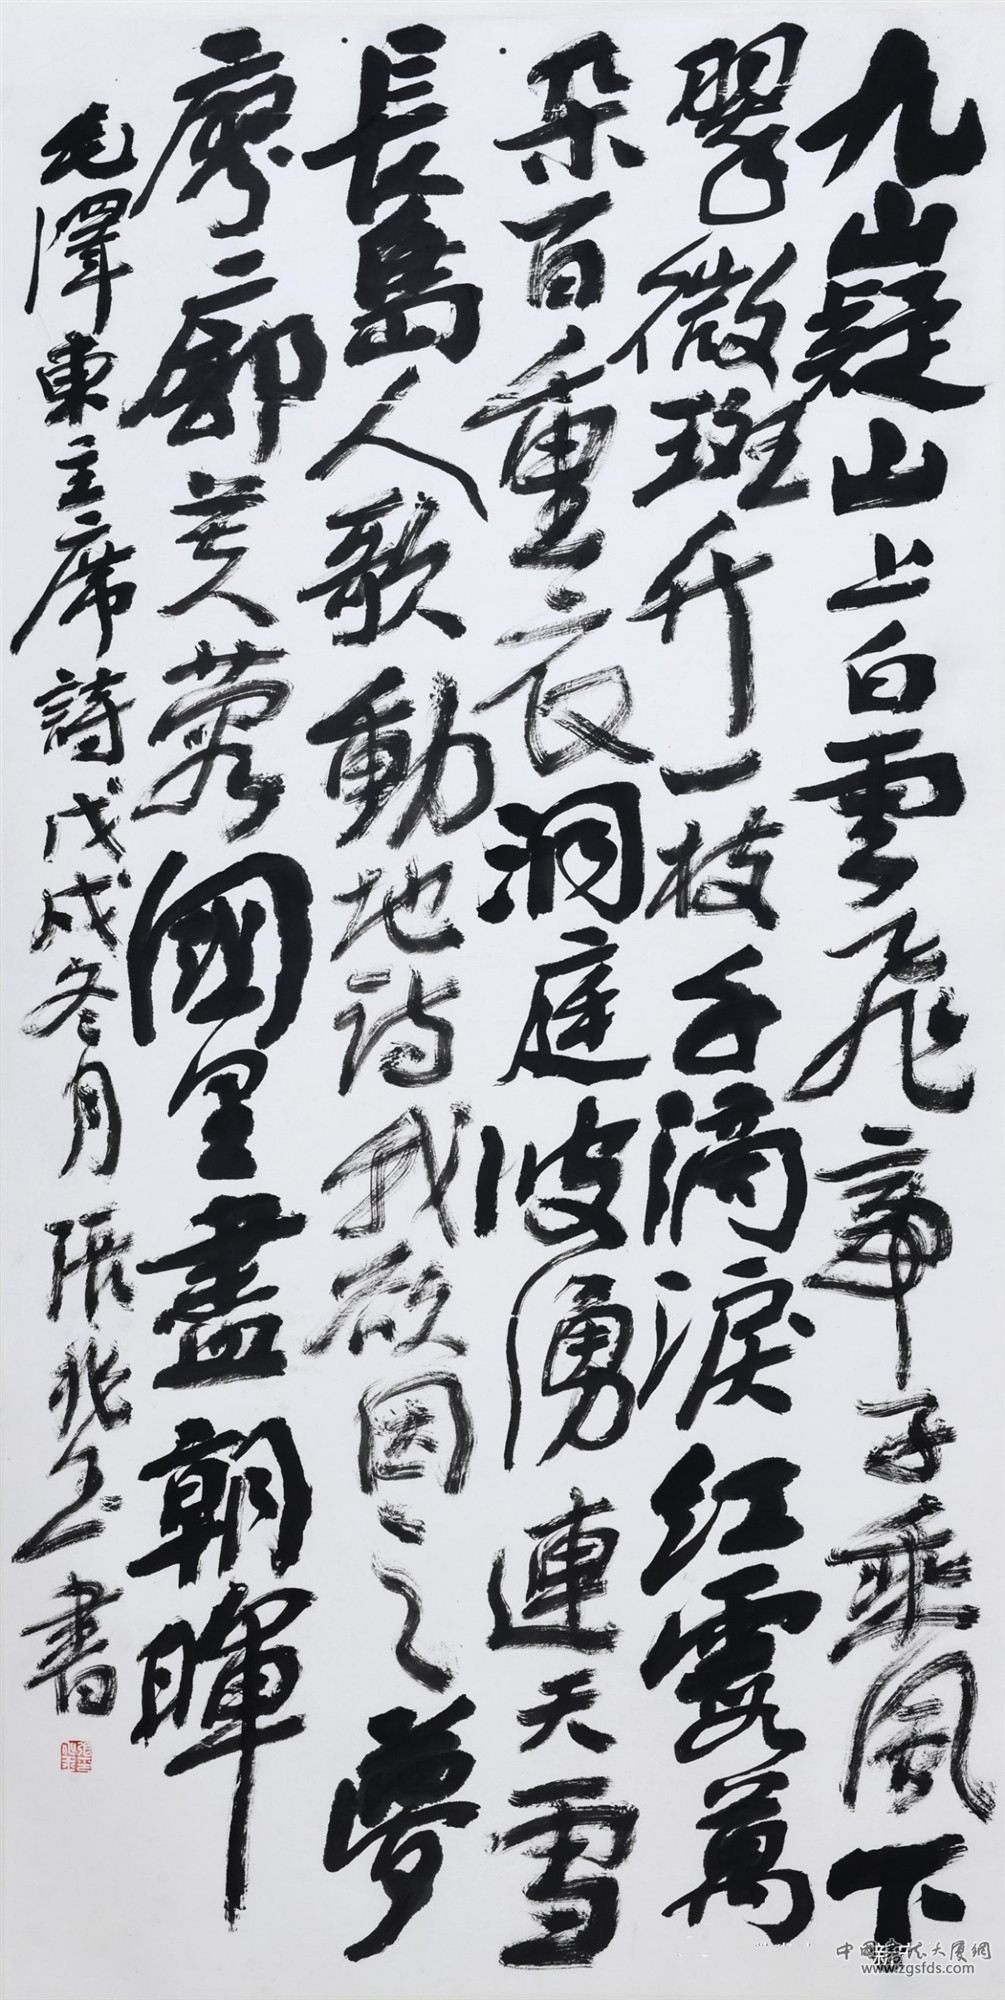 九嶷山上白雲飛帝子乘風下
翠微斑竹一枝千滴淚红霞萬
朵百重衣洞庭波湧連天雪
長島人歌動地诗我欲因之夢
廖廓芙蓉國里盡朝暉
毛澤東主席詩戊戌冬月張兆玉書
中國書法大厦網
www.zgsfds.com